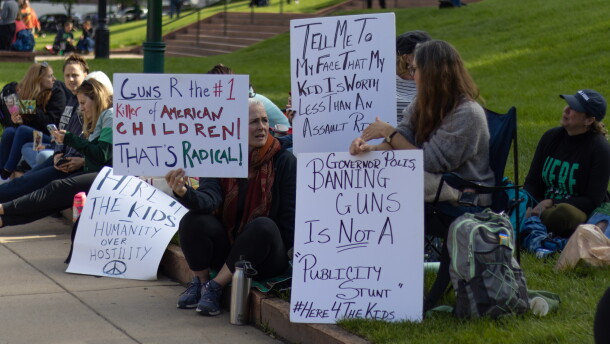 GUNS R THE #1
Killer of AMERICAN
CHILDREN!
THAT'S RADICAL!
TELL ME TO
MY FACE THAT MY
KID IS WORTH
LESS THAN AN
ASSAULT
HERE 4
THE KIDS
HUMANITY
OVER
HOSTILITY
GOVERNOR POLIS,
BANNING
GUNS
IS NOT A
"PUBLICITY
STUNT"
#HERE4THEKIDS
HERE